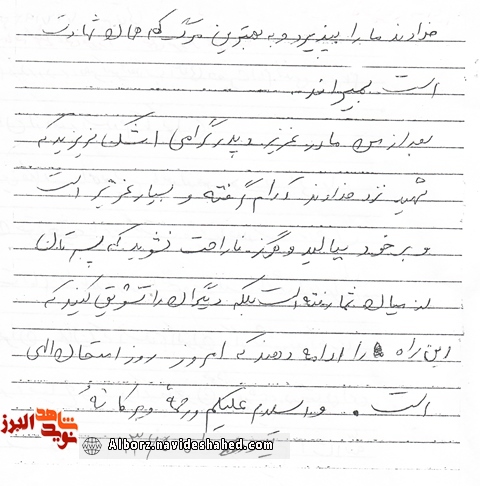 خداوند ما را بپذیرد و به بهترین مرگ که همان شهادت
است بمیراند.
بعد از من مادر عزیز و پدر گرامی اشک نریزید که
شهید نزد خداوند آرام گرفته و بسیار عزیز است
و بر خود ببالید و هرگز ناراحت نشوید که پسرتان
از میان شما رفته است بلکه دیگران را تشویق کنید که
این راه را ادامه دهند که امروز روز امتحان الهی
است. والسلام علیکم و رحمة و برکاته
نوید شاهد البرز
Alborz.navideshahed.com